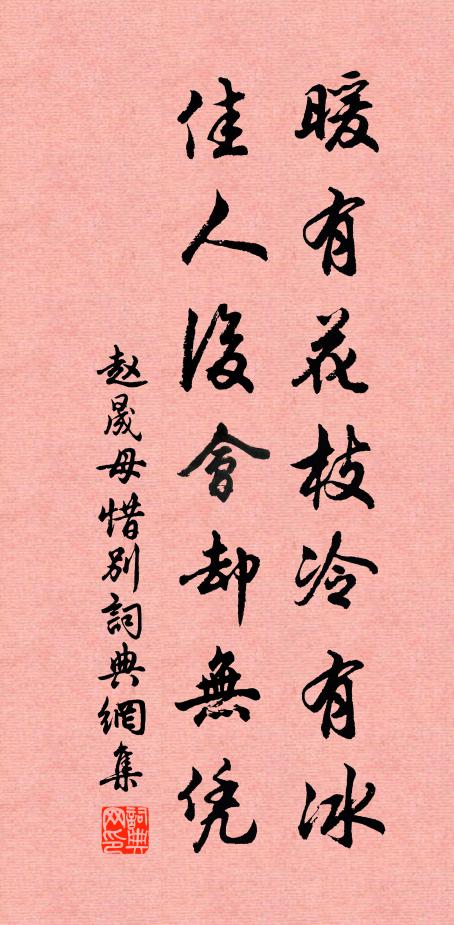 暖有花枝冷有冰
佳人後會却無凭
赵晟母惜別詞典網集
詞典网印